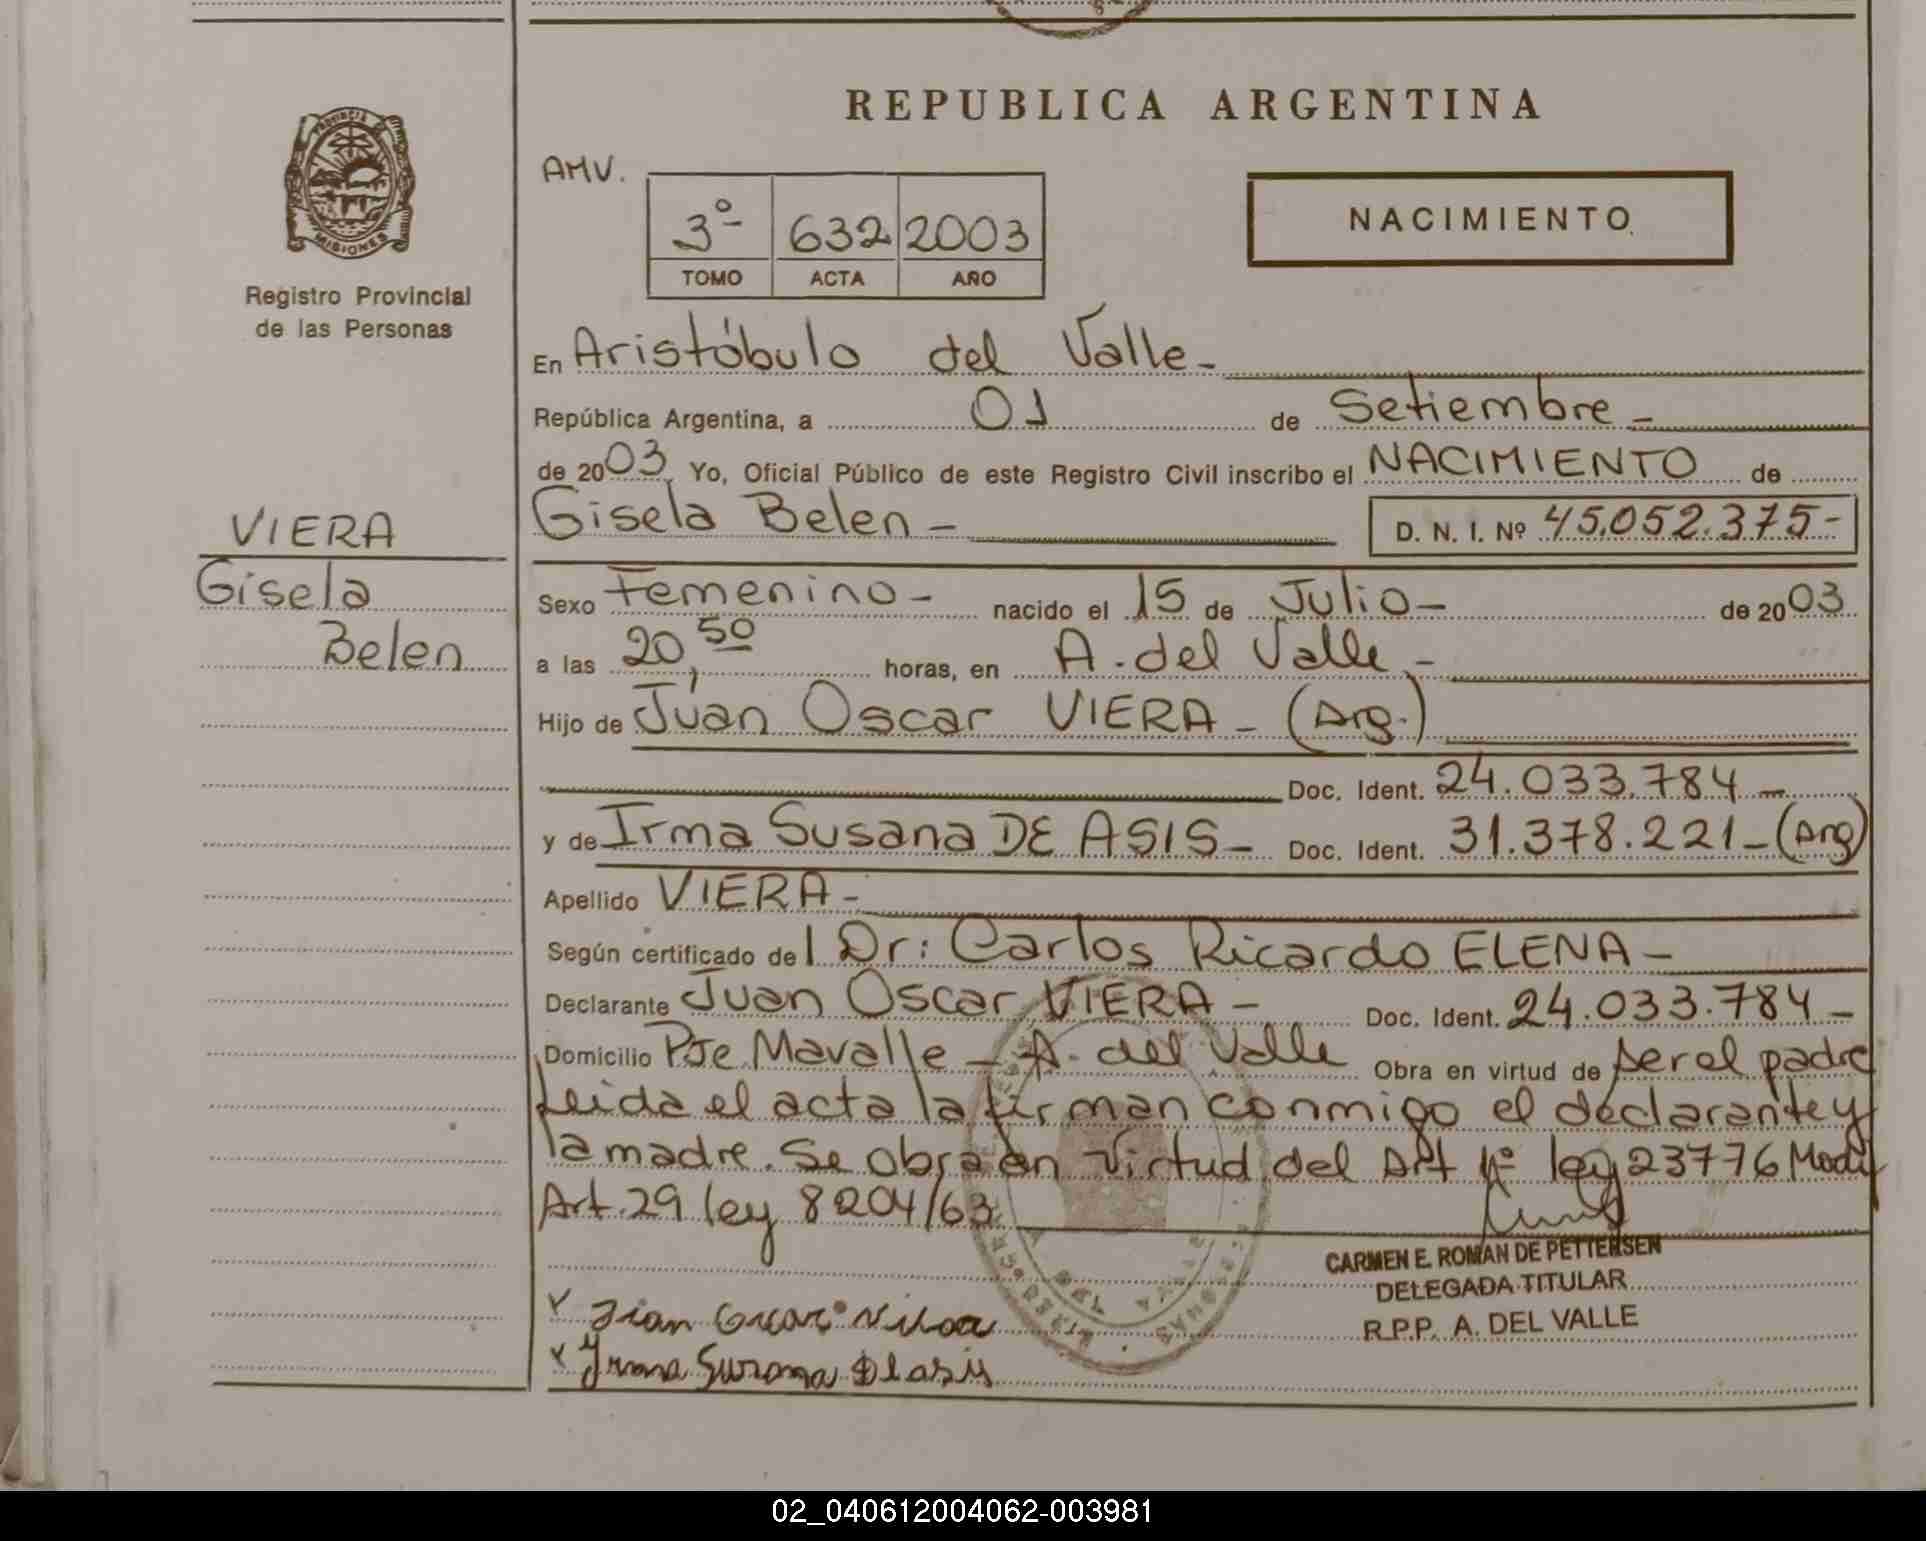 REPUBLICA ARGENTINA
PROVINCIA DE
MISIONES
Registro Provincial
de las Personas
AMV.
3º 632 2003
TOMO ACTA AÑO
NACIMIENTO
En Aristóbulo del Valle -
República Argentina, a 01 de Setiembre -
de 2003 Yo, Oficial Público de este Registro Civil inscribo el NACIMIENTO de
Gisela Belen - D. N. I. Nº 45.052.375-
VIERA
Gisela
Belen
Sexo Femenino - nacido el 15 de Julio - de 2003
a las 20,50 horas, en A. del Valle -
Hijo de Juan Oscar VIERA - (Arg.)
Doc. Ident. 24.033.784 -
y de Irma Susana DE ASIS - Doc. Ident. 31.378.221 - (Arg)
Apellido VIERA -
Según certificado del Dr: Carlos Ricardo ELENA -
Declarante Juan Oscar VIERA - Doc. Ident. 24.033.784 -
Domicilio Pje Mavalle - A. del Valle Obra en virtud de ser el padre
Leida el acta la firman conmigo el declarante y
la madre. Se obra en virtud del Art 1º ley 23776 Modif
Art. 29 ley 8204/63
CARMEN E. ROMAN DE PETTERSEN
DELEGADA TITULAR
R.P.P. A. DEL VALLE
x Juan Oscar Viera
x Irma Susana D Asis
02_040612004062-003981